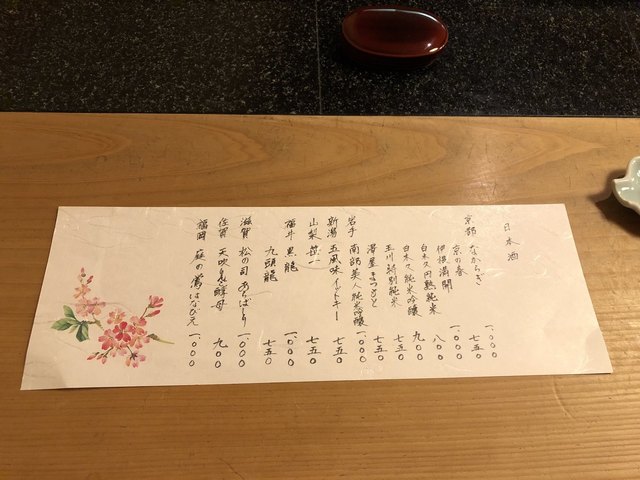 日本酒
京都 なからぎ 一、〇〇〇
京の春 七五〇
伊根満開 一、〇〇〇
白木久 円熟純米 八〇〇
白木久 純米吟醸 九〇〇
玉川 特別純米 七五〇
澤屋まつもと 七五〇
岩手 南部美人 純米吟醸 一、〇〇〇
新潟 イットキー 七五〇
山梨 笹一 七五〇
福井 黒龍 一、〇〇〇
九頭龍 七五〇
滋賀 松の司 あらばしり 一、〇〇〇
佐賀 天吹 酵母 九〇〇
福岡 庭の鶯 一、〇〇〇